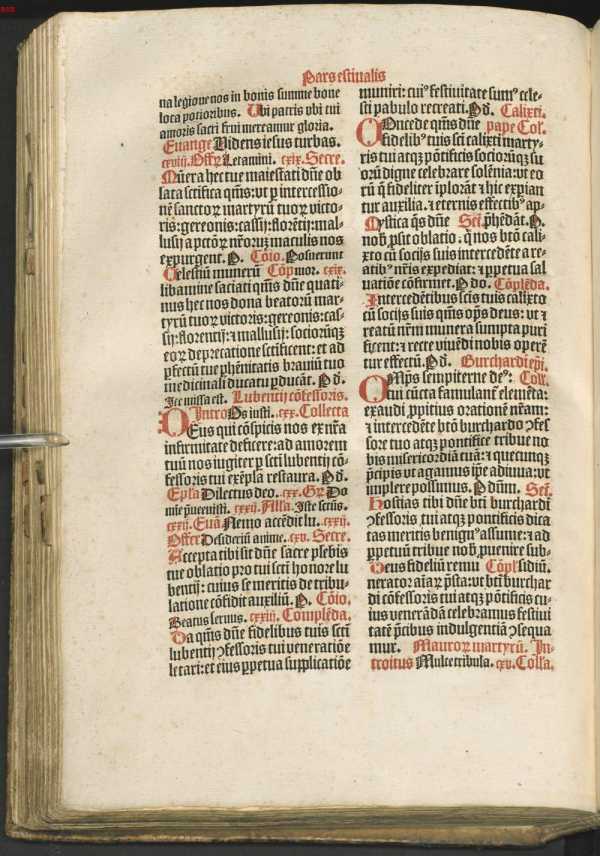 Pars estiualis
na legione nos in bonis summe bone
loca potioribus. Ubi patris ybi tui
amoris sacri frui mereamur gloria.
Euange Uidens iesus turbas.
cxviij. Offꝝ Letamini. cxix. Secre.
Munera hec tue maiestati dn̄e ob
lata sctifica qm̄s: vt ꝑ intercessio-
nē sanctoꝝ martyrū tuoꝝ victo-
ris: gereonis: cassij: florētij: mal-
lusij a pctō ꝝ nr̄oruꝫ maculis nos
expurgent. P. Cōio. Posuerunt
Celestiū munerū Cōp mor. cxix.
libamine saciati qm̄s dn̄e quati-
nus hec nos dona beatorū mar-
tyrū tuoꝝ victoris: gereonis: cas-
sij: florentij: ⁊ mallusij: socioruꝫqꝫ
eoꝝ deprecatione sctificent: et ad
ꝑfectū tue ꝑhēnitatis brauiū tuo
medicinali ducatu ꝑducāt. P. d.
Ite missa est. Lubentij cōfessoris.
Intro Os iusti. cxx. Collecta
DEus qui cōspicis nos ex nr̄a
infirmitate deficere: ad amorem
tuū nos iugiter ꝑ scti lubentij cō-
fessoris tui exēpla restaura. P. d.
Epl̄a Dilectus deo. cxx. Gꝝ Do
mie p̄ueenisti. cxxij. Al̄la. Iste sctūs.
cxxij. Euā Nemo accēdit lu. cxxij.
Offer Desideriū anime. cxv. Secre.
Accepta tibi sit dn̄e sacre plebis
tue oblatio pro tui scti honore lu
bentij: cuius se meritis de tribu-
latione cōfidit auxiliū. P. Cōio.
Beatus seruus. cxxiij. Complēda.
Da qm̄s dn̄e fidelibus tuis scti
lubentij ꝯfessoris tui veneratiōe
letari: et eius ꝑpetua supplicatiōe
muniri: cuiꝰ festiuitate sumꝰ cele-
sti pabulo recreati. P. d. Calixti.
COncede qm̄s dn̄e pape Col̄.
fidelibꝰ tuis scī calixti marty-
ris tui atqꝫ pōtificis socioruꝫqꝫ su
orū digne celebrare solēnia: vt eo
rū q̄ fideliter īplorāt ⁊ hic expian
tur auxilia. ⁊ eternis effectibꝰ ap-
Mystica q̄s dn̄e Sec̄. p̄hēdāt. P.
nob̄ ꝓsit oblatio. q̄ nos btō cali-
xto cū socijs suis intercedēte a re-
atibꝰ nr̄is expediat: ⁊ ꝑpetua sal
uatiōe cōfirmet. P. do. Cōplēda.
Intercedētibus sctis tuis calixto
cū socijs suis qm̄s op̄s deus: vt ⁊
reatū nr̄m munera sumpta puri
ficent: ⁊ recte viuēdi nobis operē
tur effectū. P. d. Burchardi ep̄i.
OMp̄s sempiterne deꝰ: Col̄.
tui cūcta famulant̄ elemēta:
exaudi ꝓpitius orationē nr̄am:
⁊ intercedēte btō burchardo ꝯfes
sore tuo atqꝫ pontifice tribue no
bis misericordiā tuā: ⁊ quecunqꝫ
p̄cipis vt agamus ip̄e adiuua: vt
implere possimus. P. dn̄um. Sec̄.
Hostias tibi dn̄e bti burchardi
ꝯfessoris tui atqꝫ pontificis dica
tas meritis benignꝰ assume: ⁊ ad
ꝑpetuū tribue nob̄ ꝓuenire sub-
Deus fideliū remu Cōpl̄ sidiū.
nerator aīaꝝ p̄sta: vt bti burchar
di cōfessoris tui atqꝫ pōtificis cu-
ius venerādā celebramus festiui
tatē p̄cibus indulgentiā ꝯsequa
mur. Mauroꝝ martyrū. In-
troitus Multe tribula. cxv. Col̄la.